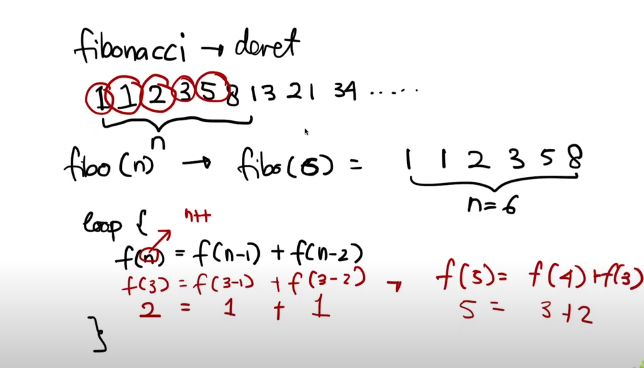 fibonacci → deret
1 1 2 3 5 8 13 21 34 .....
n
fibo(n) → fibo(6) = 1 1 2 3 5 8
n=6
loop { n++
f(n) = f(n-1) + f(n-2)
f(3) = f(3-1) + f(3-2) → f(5) = f(4)+f(3)
2 = 1 + 1 5 = 3+2
}